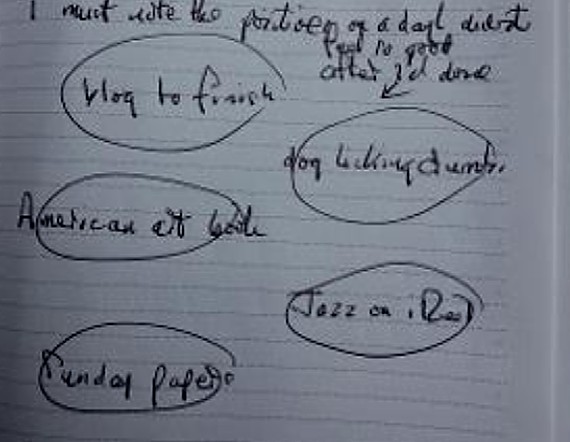 I must note the positives of a day I didn't
feel so good
after I'd done
Vlog to finish
dog licking
American art book
Jazz on iPod
Sunday papers